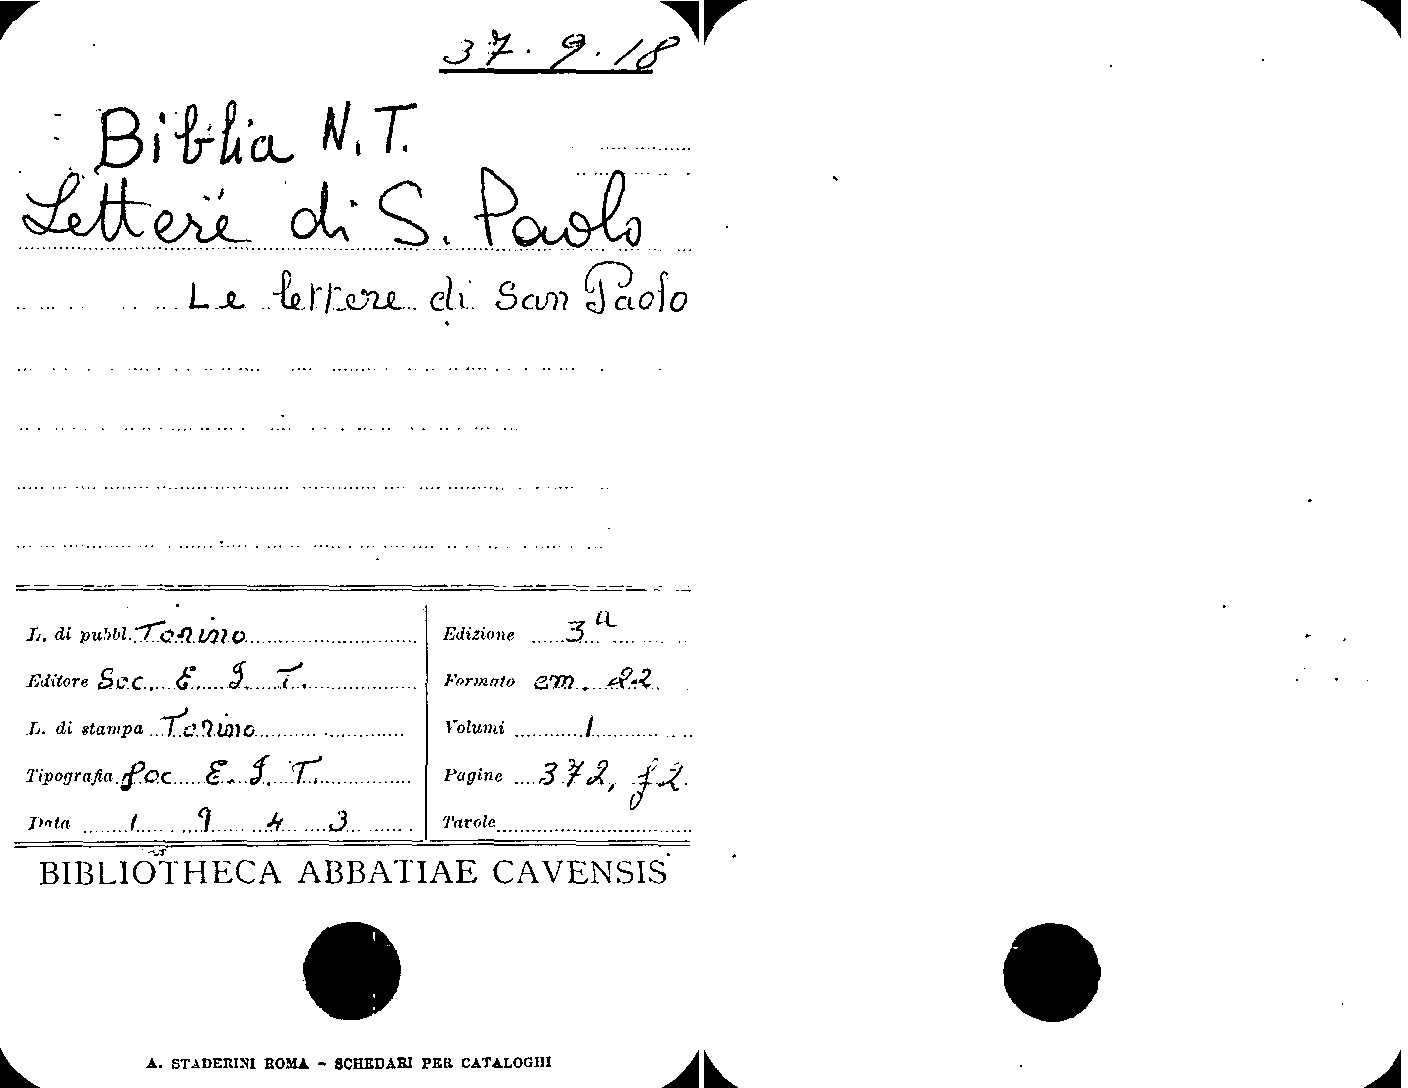 37.9.18
Biblia N.T.
Lettere di S. Paolo
Le lettere di San Paolo
L. di pubbl. Torino
Edizione 3a
Editore Soc. E. I. T.
Formato cm. 22
L. di stampa Torino
Volumi 1
Tipografia Soc E. I. T.
Pagine 372, f2.
Data 1943
Tavole
BIBLIOTHECA ABBATIAE CAVENSIS
A. STADERINI ROMA - SCHEDARI PER CATALOGHI